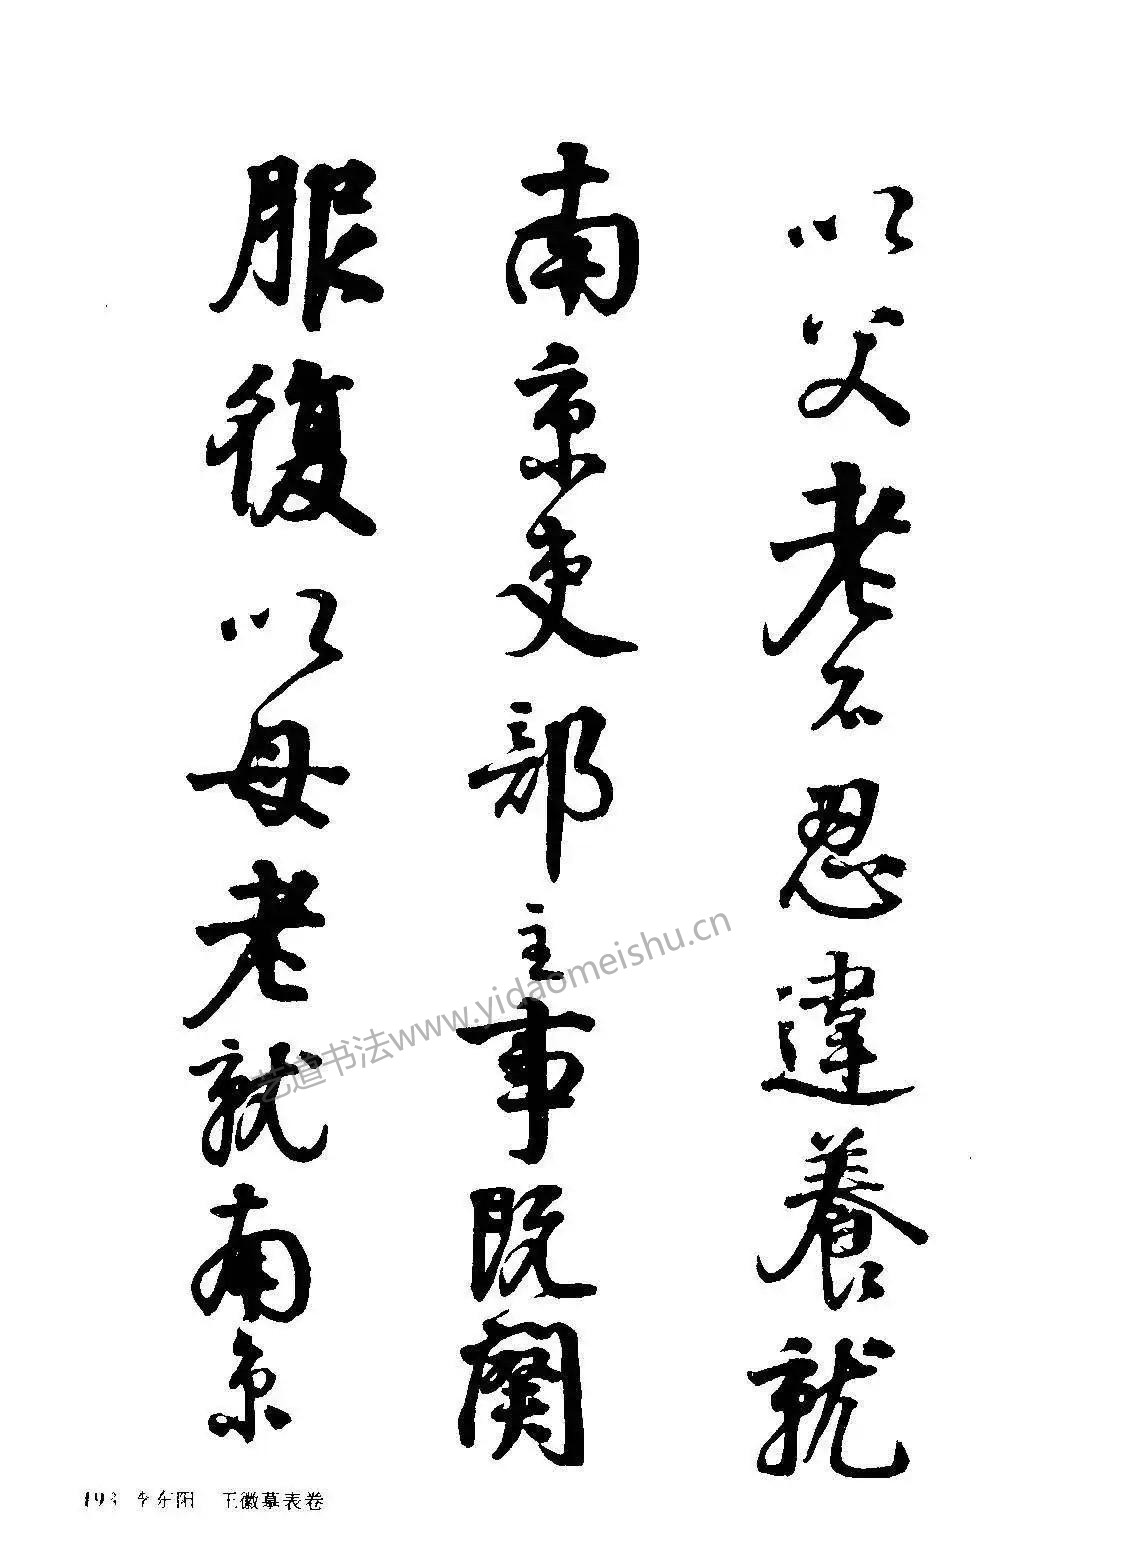 以父老不忍違養就
南京吏部主事既闋
服復以母老就南京
艺道书法www.yidaomeishu.cn
193 李东阳 王徽墓表卷